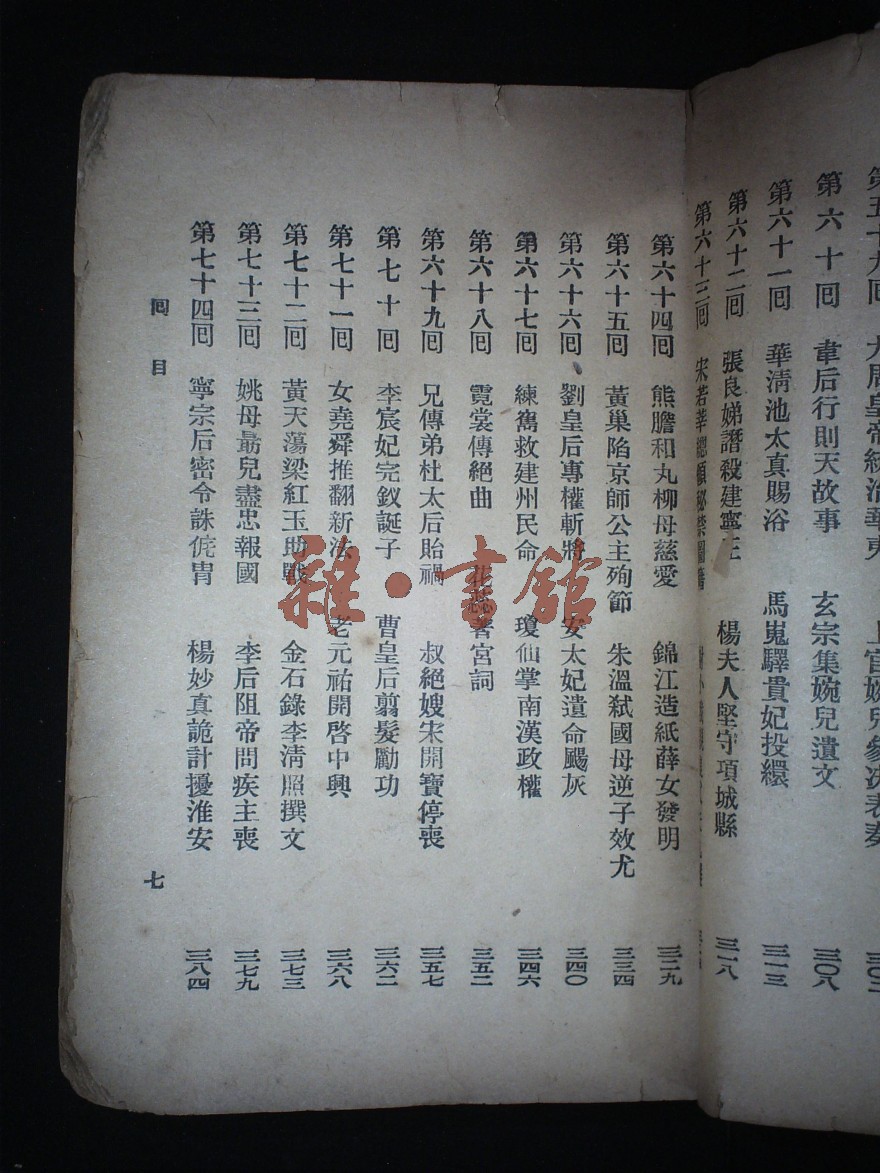 第六十回 韋后行則天故事 玄宗集婉兒遺文 三〇八
第六十一回 華清池太真賜浴 馬嵬驛貴妃投繯 三一三
第六十二回 張良娣譖殺建寧王 楊夫人堅守項城縣 三一八
第六十三回 宋若莘總領秘禁圖籍
第六十四回 熊膽和丸柳母慈愛 錦江造紙薛女發明 三二九
第六十五回 黃巢陷京師公主殉節 朱溫弒國母逆子效尤 三三四
第六十六回 劉皇后專權斬將 安太妃遺命颺灰 三四〇
第六十七回 練寯救建州民命 瓊仙掌南漢政權 三四六
第六十八回 霓裳傳絕曲 花蕊著宮詞 三五二
第六十九回 兄傳弟杜太后貽禍 叔絕嫂宋開寶停喪 三五七
第七十回 李宸妃完釵誕子 曹皇后翦髮勵功 三六二
第七十一回 女堯舜推翻新法 老元祐開啓中興 三六八
第七十二回 黃天蕩梁紅玉助戰 金石錄李清照撰文 三七三
第七十三回 姚母勗兒盡忠報國 李后阻帝問疾主喪 三七九
第七十四回 寧宗后密令誅侂冑 楊妙真詭計擾淮安 三八四
回目 七
雜·書館